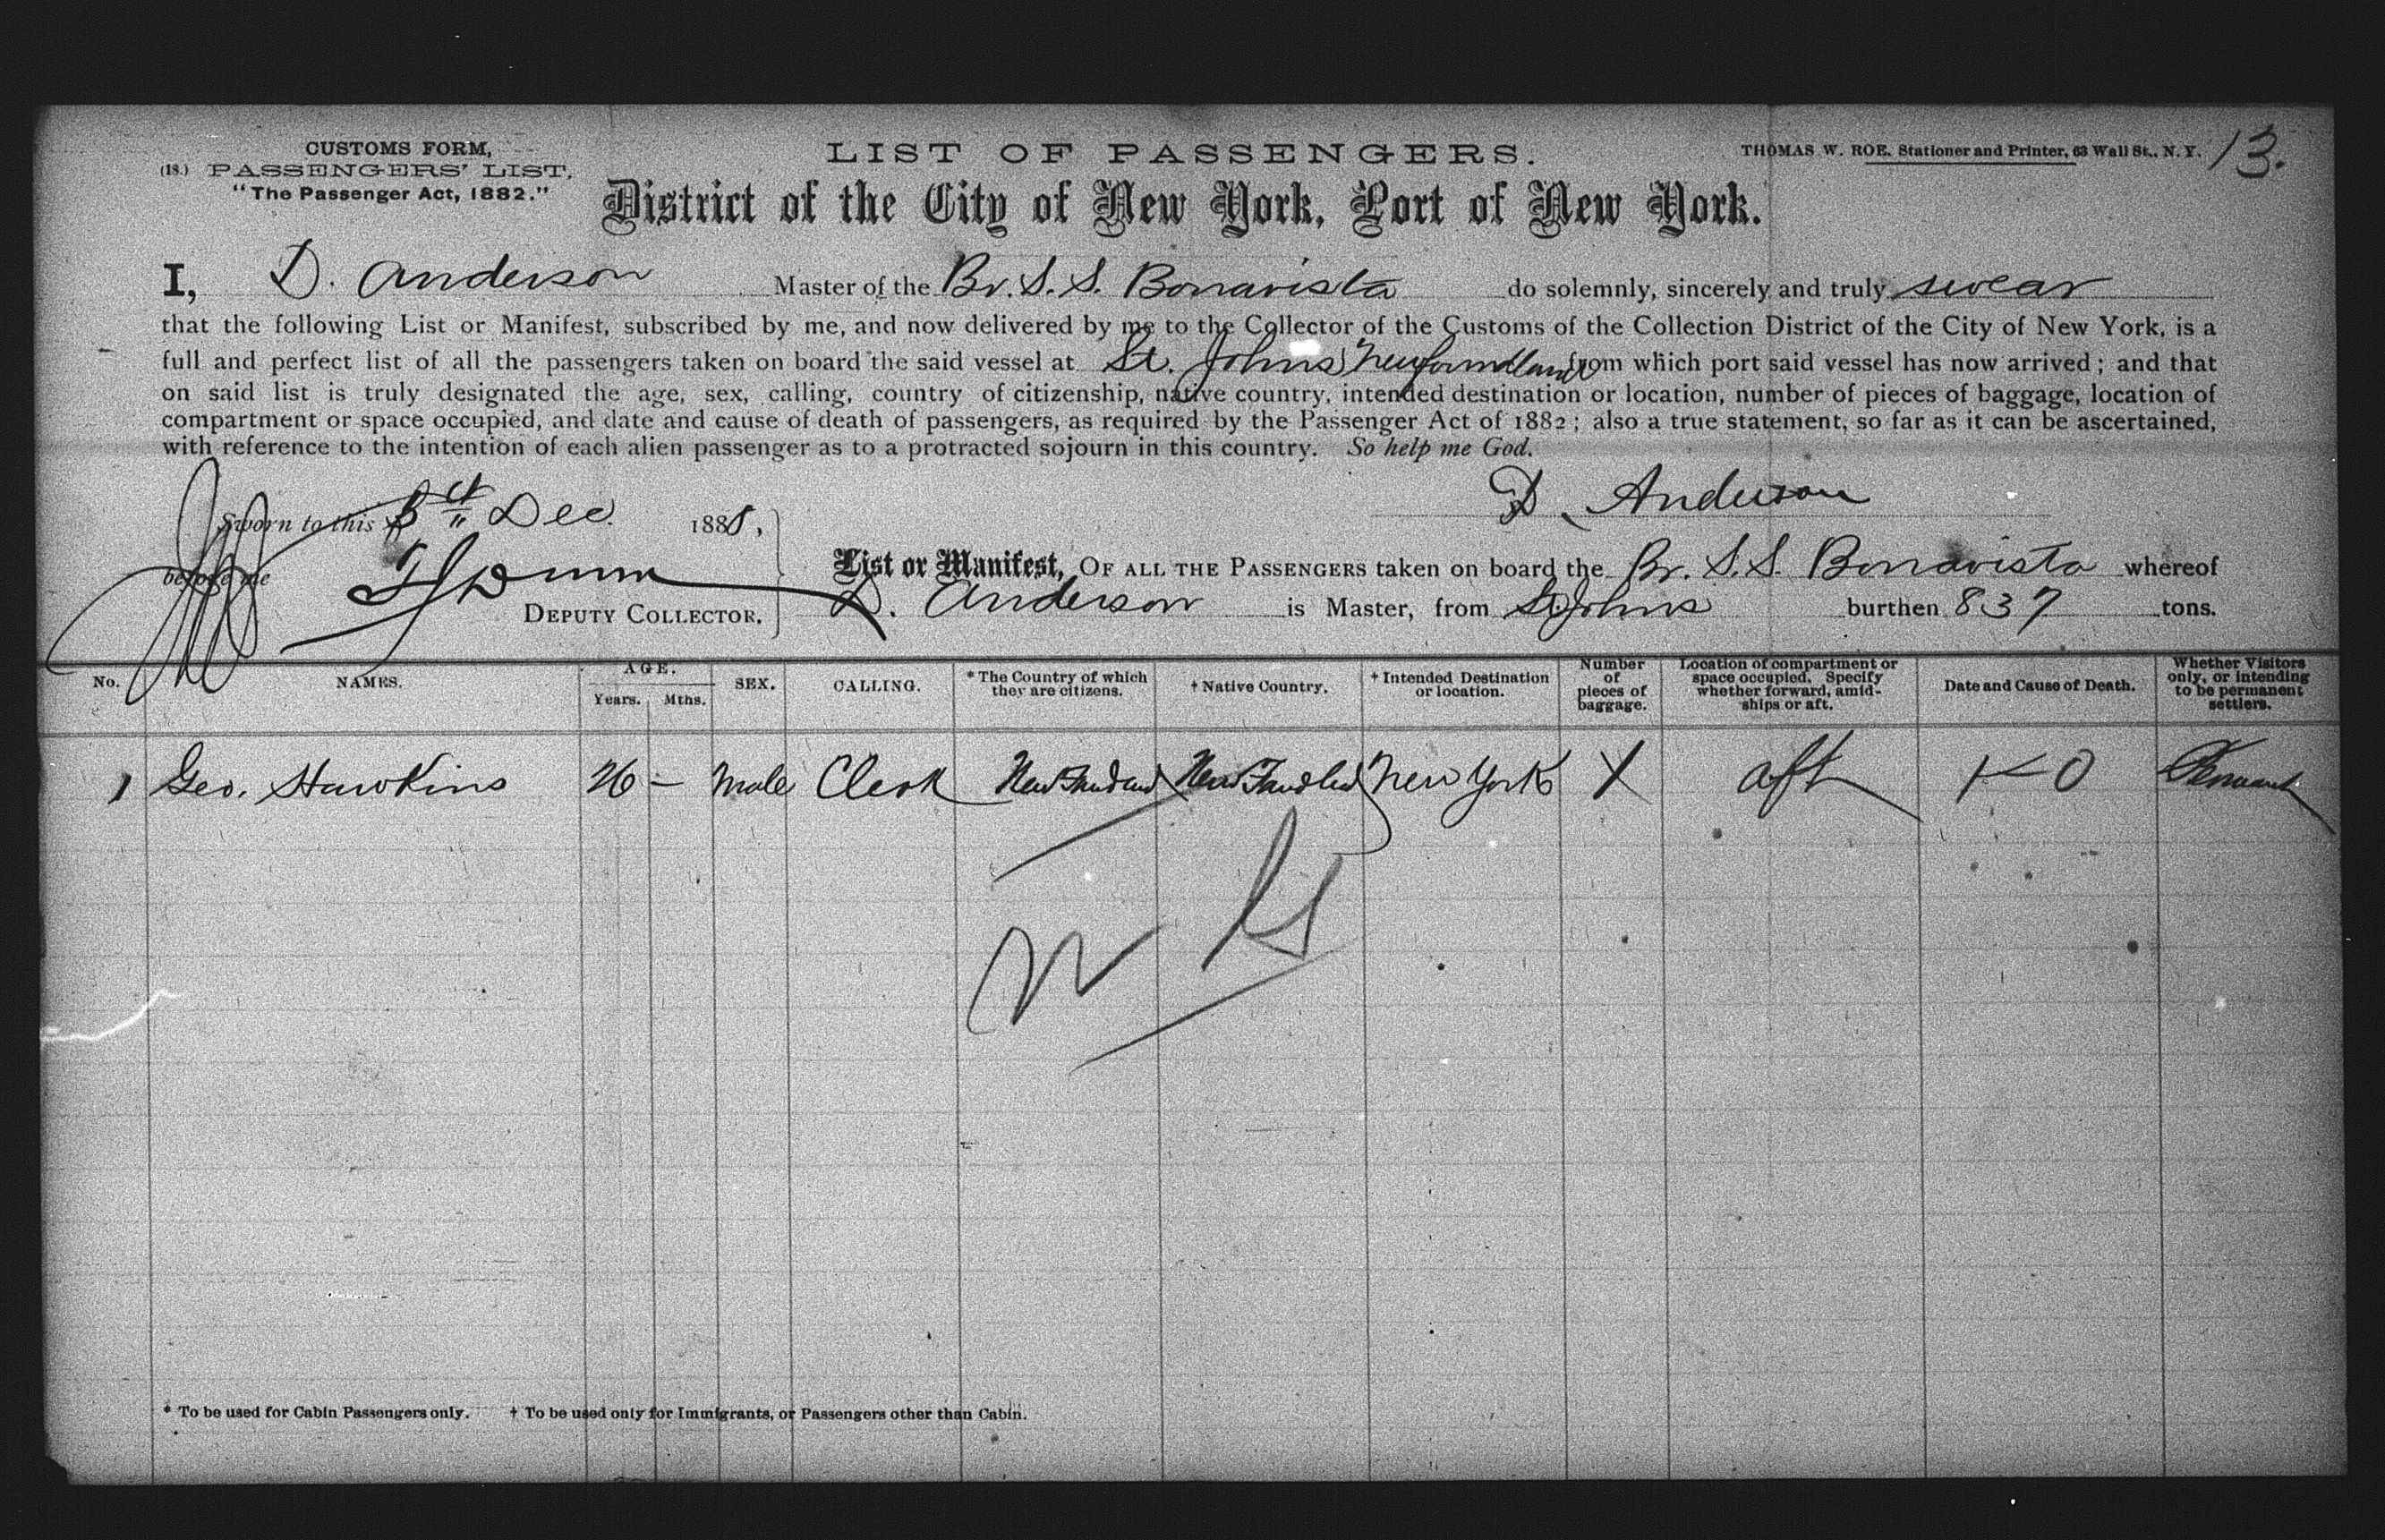 CUSTOMS FORM,
(18.) PASSENGERS' LIST.
"The Passenger Act, 1882."
LIST OF PASSENGERS.
THOMAS W. ROE, Stationer and Printer, 63 Wall St., N. Y.
13.
District of the City of New York, Port of New York.
I, D. Anderson Master of the Br. S. S. Bonavista do solemnly, sincerely and truly swear
that the following List or Manifest, subscribed by me, and now delivered by me to the Collector of the Customs of the Collection District of the City of New York, is a
full and perfect list of all the passengers taken on board the said vessel at St. Johns Newfoundland from which port said vessel has now arrived; and that
on said list is truly designated the age, sex, calling, country of citizenship, native country, intended destination or location, number of pieces of baggage, location of
compartment or space occupied, and date and cause of death of passengers, as required by the Passenger Act of 1882; also a true statement, so far as it can be ascertained,
with reference to the intention of each alien passenger as to a protracted sojourn in this country. So help me God.
D. Anderson
Sworn to this Dec. 188
before me
DEPUTY COLLECTOR.
List or Manifest, OF ALL THE PASSENGERS taken on board the Br. S. S. Bonavista whereof
D. Anderson is Master, from St. Johns burthen 837 tons.
No. NAMES. AGE. Years. Mths. SEX. CALLING. * The Country of which they are citizens. † Native Country. † Intended Destination or location. Number of pieces of baggage. Location of compartment or space occupied. Specify whether forward, amidships or aft. Date and Cause of Death. Whether Visitors only, or intending to be permanent settlers.
1 Geo. Hawkins 26 — Male Clerk New York aft
* To be used for Cabin Passengers only. † To be used only for Immigrants, or Passengers other than Cabin.